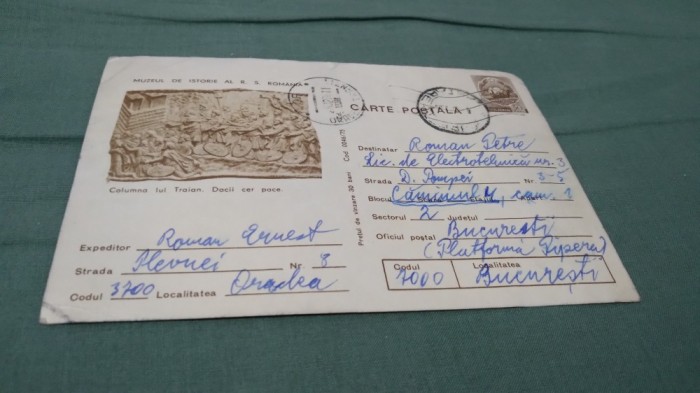 MUZEUL DE ISTORIE AL R. S. ROMANIA
Columna lui Traian. Dacii cer pace.
Expeditor Roman Ernest
Strada Plevnei Nr. 8
Codul 3700 Localitatea Oradea
Prețul de vînzare 30 bani
CARTE POȘTALĂ
Destinatar Roman Petre
Lic. de Electrotehnică nr. 3
Strada D. Pompei Nr. 3-5
Blocul Căminul 4, cam. 1
Sectorul 2 Județul
Oficiul poștal București
(Platforma Pipera)
Codul Localitatea
7000 București